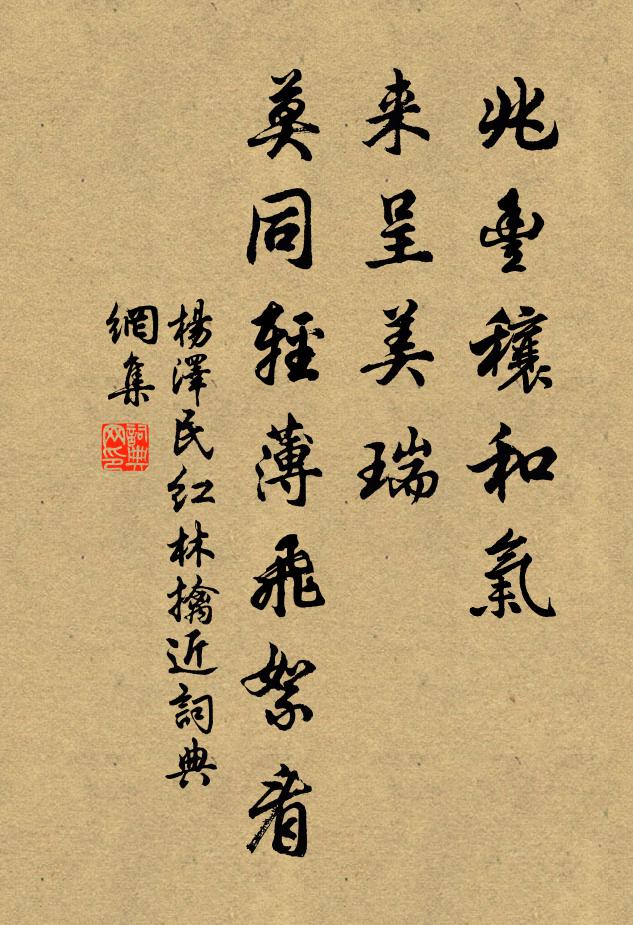 兆豐穰和氣
来呈美瑞
莫同輕薄飛絮看
楊澤民紅林擒近詞典
網集
詞典网印